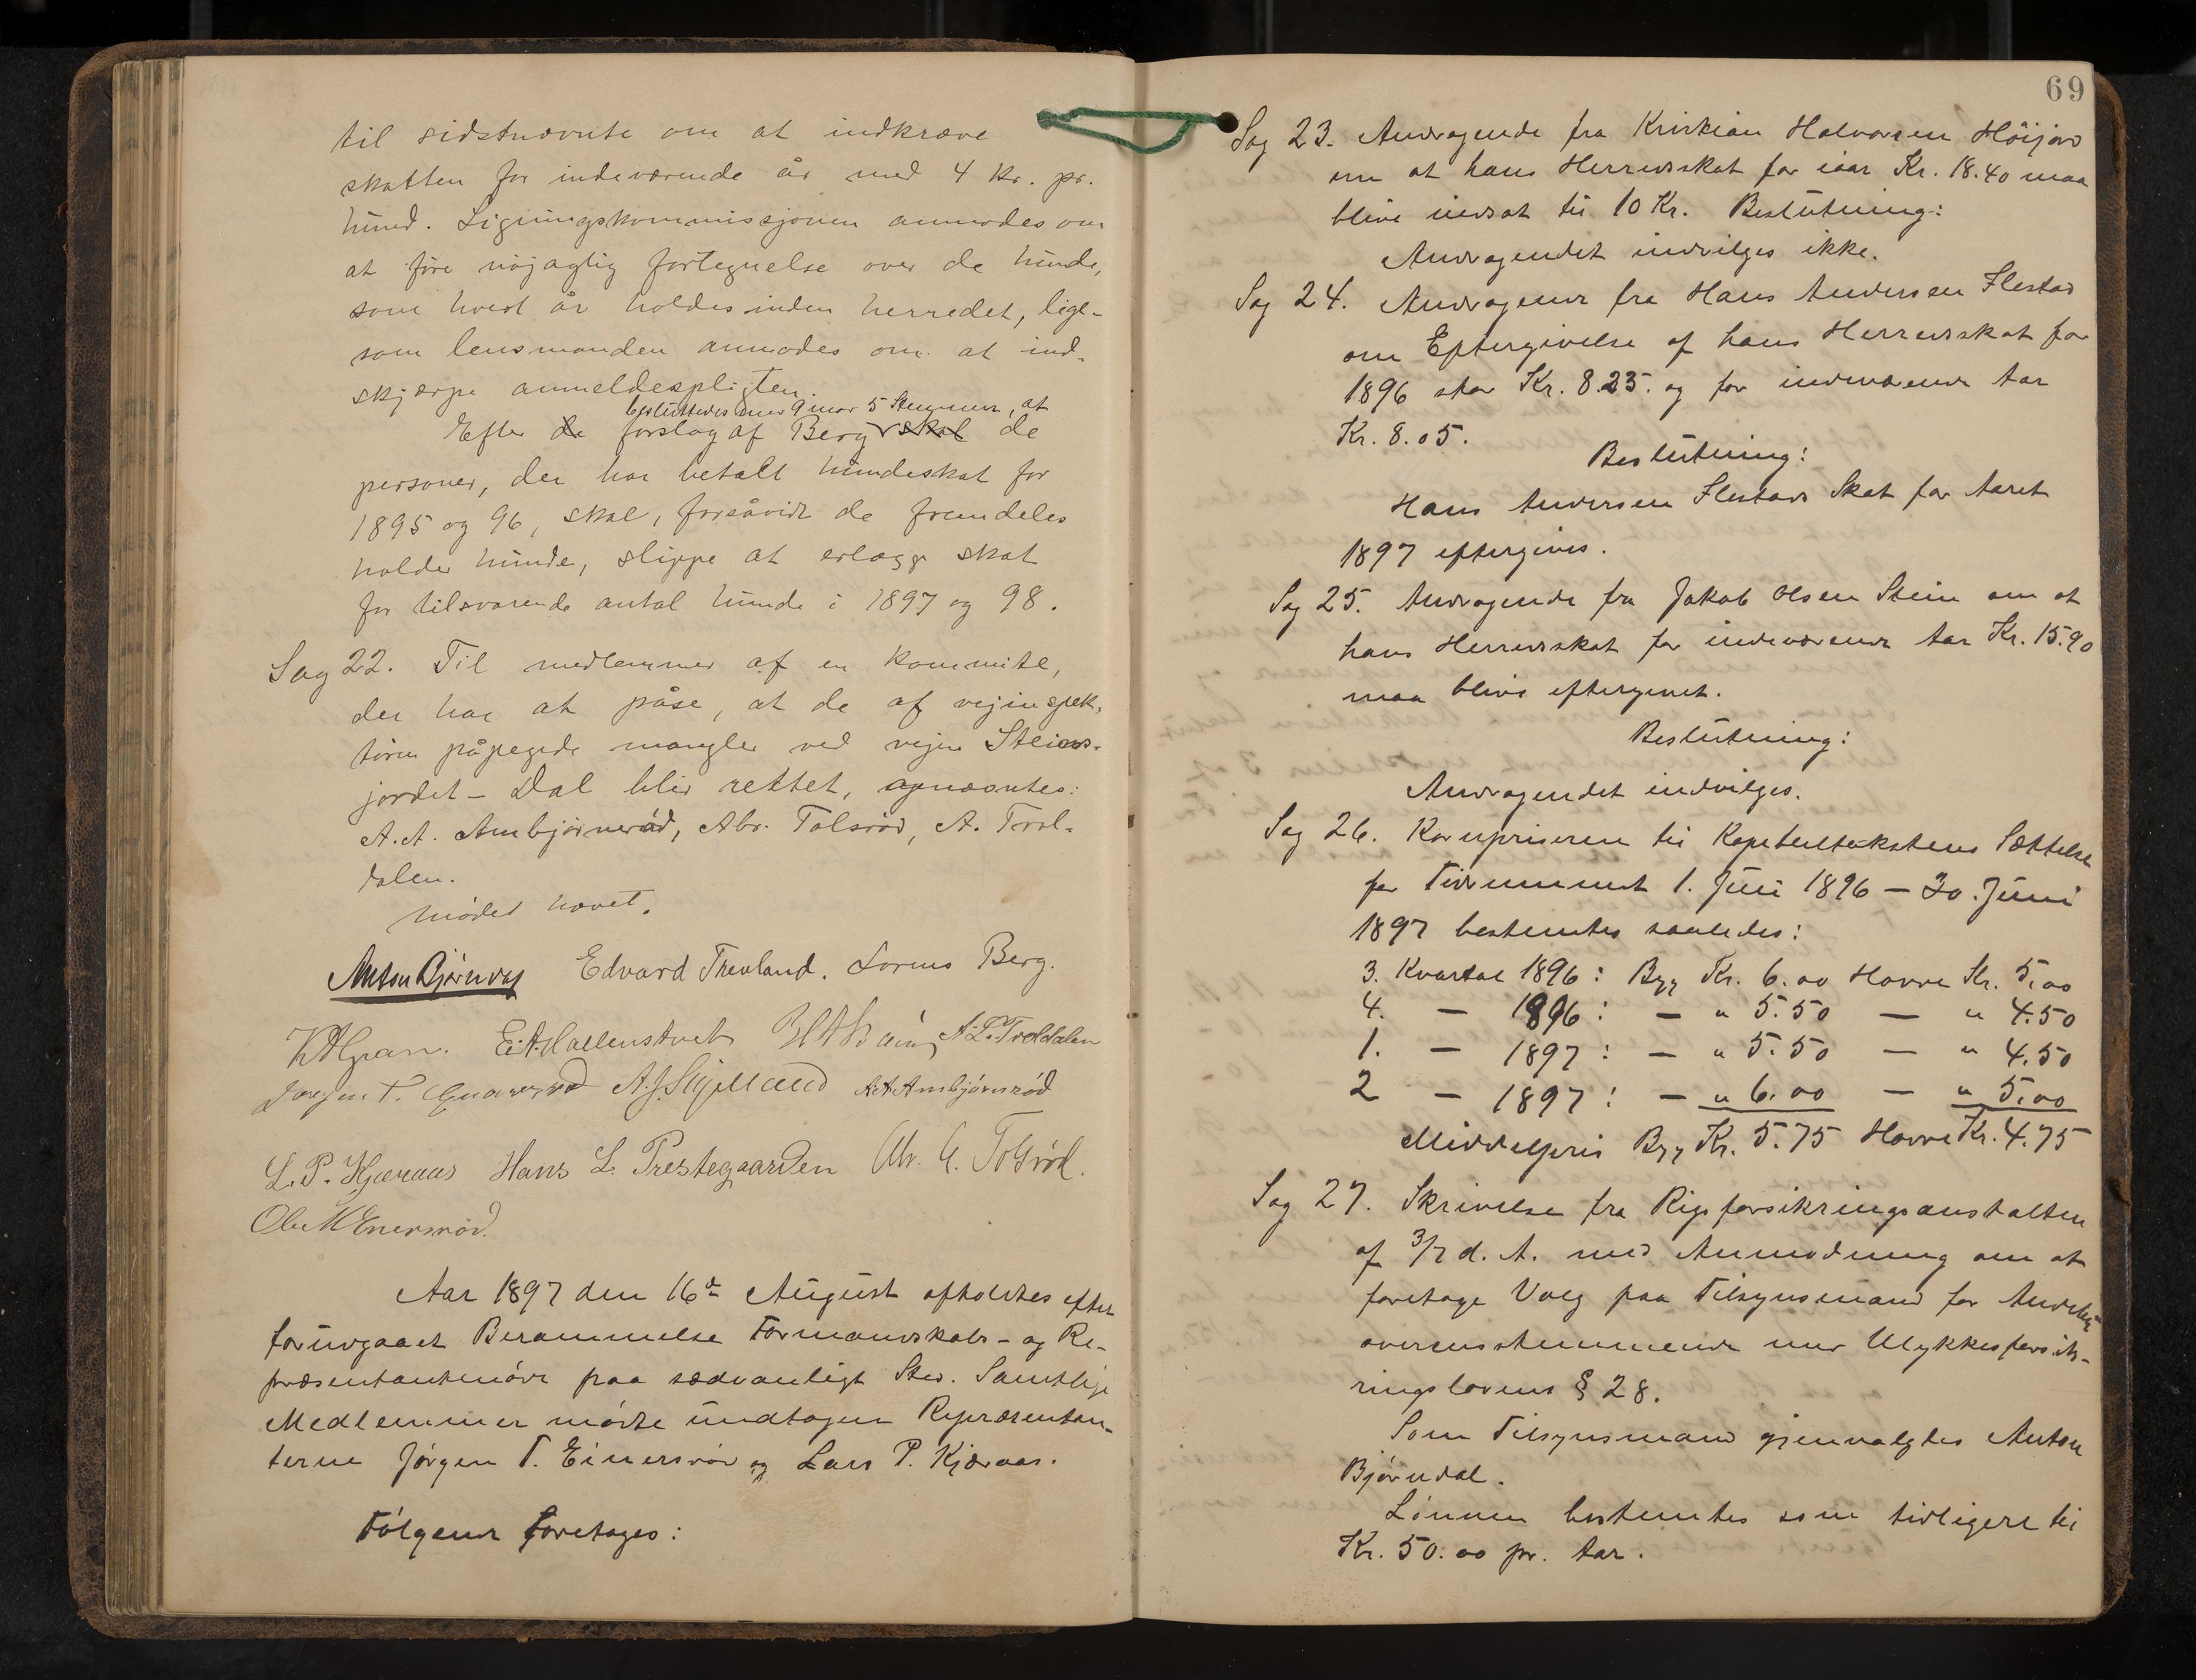 til sidstnævnte om at indkræve
skatten for indeværende år med 4 kr. pr.
hund. Ligningskommissjonen anmodes om
at føre nöjagtig fortegnelse over de hunde,
som hvert år holdes inden herredet, lige-
som lensmanden anmodes om at ind-
skjærpe anmeldespligten.
besluttedes med 9 mod 5 Stemmer, at
Efter de forslag af Berg skal de
personer, der har betalt hundeskat for
1895 og 96, skal, forsåvidt de fremdeles
holder hunde, slippe at erlægge skat
for tilsvarende antal hunde i 1897 og 98.
Sag 22. Til medlemmer af en kommite,
der har at påse, at de af vejinspek-
tören påpegede mangler ved vejen Steins-
jordet – Dal blir rettet, opnævntes:
A. A. Ambjörneröd, Abr. Tolsröd, A. Trol-
dalen.
Mödet hævet.
Anton Bjørndal Edvard Trevland. Lorens Berg.
K A Gran. E. A. Hallenstvet A. L. Troldalen
Jørgen T. A. J. Skjelland A. A. Ambjørnrød
L. P. Kjæraas Hans L. Prestegaarden Abr. A. Tolsrød.
Ole M Enersrød.
Aar 1897 den 16d August afholdtes efter
forudgaaet Berammelse Formandskabs- og Re-
præsentantmöde paa sædvanligt Sted. Samtlige
Medlemmer mödte undtagen Repræsentan-
terne Jörgen T. Einersröd og Lars P. Kjæraas.
Fölgende foretoges:
69
Sag 23. Andragende fra Kristian Halvorsen Höijord
om at hans Herredsskat for iaar Kr. 18.40 maa
blive nedsat til 10 Kr. Beslutning:
Andragendet indvilges ikke.
Sag 24. Andragende fra Hans Andersen Ilestad
om Eftergivelse af hans Herredsskat for
1896 stor Kr. 8.25. og for indeværende Aar
Kr. 8.05.
Beslutning:
Hans Andersen Ilestads Skat for Aaret
1897 eftergives.
Sag 25. Andragende fra Jakob Olsen Stein om at
hans Herredsskat for indeværende Aar Kr. 15.90
maa blive eftergivet.
Beslutning:
Andragendet indvilges.
Sag 26. Kornpriserne til Kapiteltakstens Sættelse
for Tidsrummet 1. Juli 1896 – 30. Juni
1897 bestemtes saaledes:
3. Kvartal 1896: Byg Kr. 6.00 Havre Kr. 5.00
4. – 1896: – " 5.50 – " 4.50
1. – 1897: – " 5.50 – " 4.50
2 – 1897: – " 6.00 – " 5.00
Middelpris Byg Kr. 5.75 Havre Kr. 4.75
Sag 27. Skrivelse fra Rigsforsikringsanstalten
af 3/7 d. A. med Anmodning om at
foretage Valg paa Tilsynsmand for Andebu
overensstemmende med Ulykkesforsik-
ringslovens § 28.
Som Tilsynsmand gjenvalgtes Anton
Bjørndal.
Lönnen bestemtes som tidligere til
Kr. 50.00 pr. Aar.